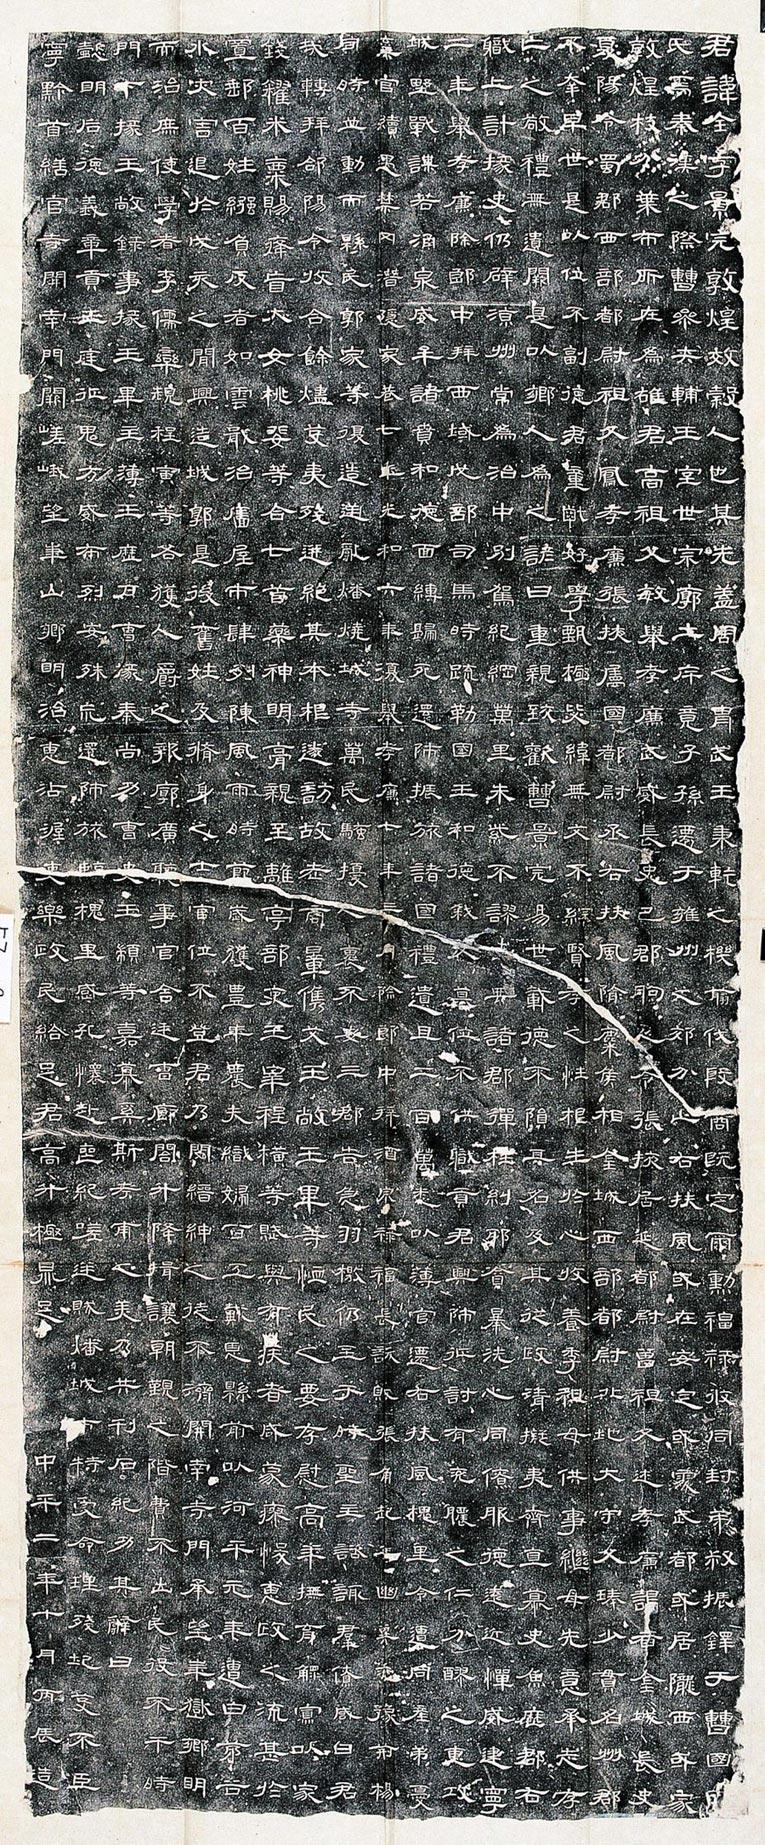 君諱全字景完敦煌效穀人也其先蓋周之胄武王秉乾之機翦伐殷商既定爾勳福祿攸同封弟叔振鐸于曹國因
氏焉秦漢之際曹參夾輔王室世宗廓土斥竟子孫遷于雍州之郊分止右扶風或在安定或處武都或居隴西或家
敦煌枝分葉布所在為雄君高祖父敏舉孝廉武威長史巴郡朐忍令張掖居延都尉曾祖父述孝廉謁者金城長史
夏陽令蜀郡西部都尉祖父鳳孝廉張掖屬國都尉丞右扶風隃麋侯相金城西部都尉北地大守父琫少貫名州郡
不幸早世是以位不副德君童齓好學甄極毖緯無文不綜賢孝之性根生於心收養季祖母供事繼母先意承志存
亡之敬禮無遺闕是以鄉人為之諺曰重親致歡曹景完易世載德不隕其名及其從政清擬夷齊直慕史魚歷郡右
職上計掾史仍辟涼州常為治中別駕紀綱萬里朱紫不謬出典諸郡彈枉糾邪貪暴洗心同僚服德遠近憚威建寧
二年舉孝廉除郎中拜西域戊部司馬時疏勒國王和德弒父篡位不供職貢君興師征討有兗膿之仁分醪之惠攻
城野戰謀若涌泉威牟諸賁和德面縛歸死還師振旅諸國禮遺且二百萬悉以薄官遷右扶風槐里令遭同產弟憂
棄官續遇禁冈潛隱家巷七年光和六年復舉孝廉七年三月除郎中拜酒泉祿福長訞賊張角起兵幽冀兗豫荊楊
同時並動而縣民郭家等復造逆亂燔燒城寺萬民騷擾人裹不安三郡告急羽檄仍至于時聖主諮諏群僚咸曰君
哉轉拜郃陽令收合餘燼芟夷殘迸絕其本根遂訪故老商量儁艾王敞王畢等恤民之要存慰高年撫育鰥寡以家
錢糴米粟賜癃盲大女桃斐等合七首藥神明膏親至離亭部吏王宰程橫等賦與有疾者咸蒙瘳悛惠政之流甚於
置郵百姓繈負反者如雲戢治廧屋市肆列陳風雨時節歲獲豐年農夫織婦百工戴恩縣前以河平元年遭白茅谷
水灾害退於戌亥之間興造城郭是後舊姓及脩身之士官位不登君乃閔縉紳之徒不濟開南寺門承望華嶽鄉明
而治庶使學者李儒欒規程寅等各獲人爵之報廓廣聽事官舍廷曹廊閤升降揖讓朝覲之階費不出民役不干時
門下掾王敞錄事掾王畢主薄王歷戶曹掾秦尚功曹史王顓等嘉慕奚斯考甫之美乃共刊石紀功其辭曰
懿明后德義章貢王庭征鬼方威布烈安殊巟還師旅臨槐里感孔懷赴喪紀嗟逆賊燔城市特受命理殘圮芟不臣
寧黔首繕官寺開南門闕嵯峨望華山鄉明治惠沾渥吏樂政民給足君高升極鼎足 中平二年十月丙辰造